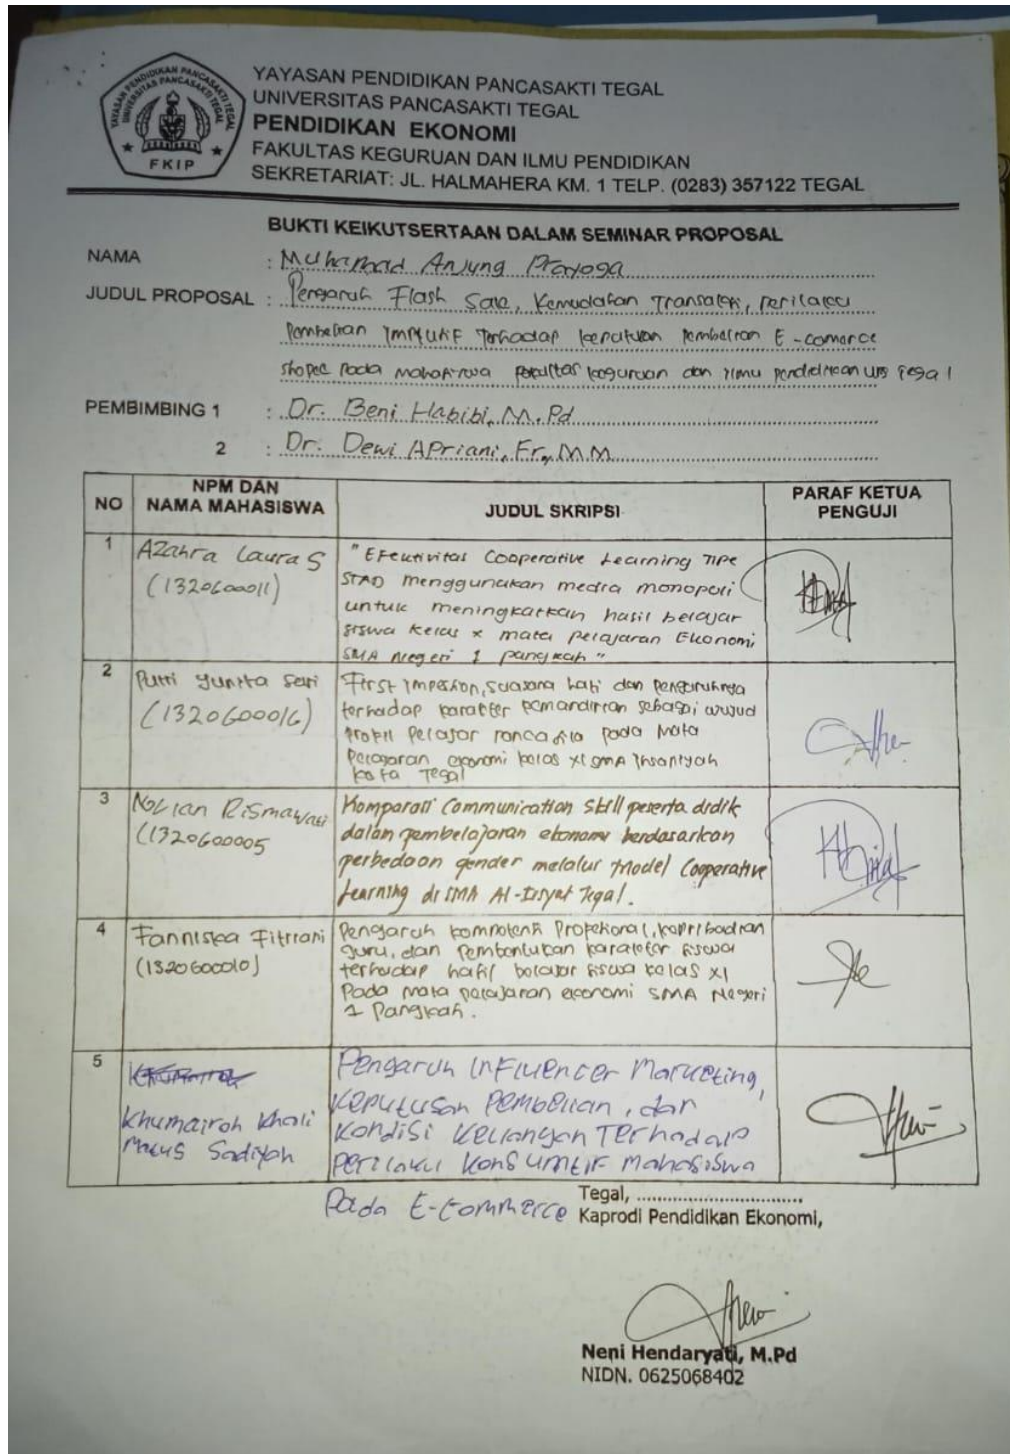 YAYASAN PENDIDIKAN PANCASAKTI TEGAL
UNIVERSITAS PANCASAKTI TEGAL
PENDIDIKAN EKONOMI
FAKULTAS KEGURUAN DAN ILMU PENDIDIKAN
SEKRETARIAT: JL. HALMAHERA KM. 1 TELP. (0283) 357122 TEGAL
YAYASAN PENDIDIKAN PANCASAKTI TEGAL
UNIVERSITAS PANCASAKTI TEGAL
FKIP
BUKTI KEIKUTSERTAAN DALAM SEMINAR PROPOSAL
NAMA : Muhamad Anjung Prayoga
JUDUL PROPOSAL : Pengaruh Flash Sale, Kemudahan Transaksi, Perilaku
Pembelian Impulsif Terhadap keputusan Pembelian E-comerce
shopee Pada mahasiswa Fakultas keguruan dan ilmu pendidikan ups Tegal
PEMBIMBING 1 : Dr. Beni Habibi, M.Pd
2 : Dr. Dewi APriani, Fr, M.M
NO
NPM DAN
NAMA MAHASISWA
JUDUL SKRIPSI
PARAF KETUA
PENGUJI
1
AZahra Laura S
(1320600011)
"Efektivitas Cooperative Learning TIPE
STAD menggunakan media monopoli
untuk meningkatkan hasil belajar
siswa kelas X mata pelajaran Ekonomi
SMA Negeri 1 pangkah"
2
Putri Yunita Sari
(1320600016)
First Impession, suasana hati dan Pengaruhnya
terhadap karakter kemandirian sebagai wujud
Profil Pelajar Pancasila Pada Mata
Pelajaran ekonomi kelas XI SMA Ihsaniyah
kota Tegal
3
Novian Rismawati
(1320600005
Komparasi Communication Skill peserta didik
dalam pembelajaran ekonomi berdasarkan
perbedaan gender melalui Model Cooperative
Learning di SMA Al-Irsyat Tegal.
4
Fanniska Fitriani
(1320600010)
Pengaruh kompotensi Profesional, kepribadian
guru, dan Pembentukan karakter siswa
terhadap hasil belajar siswa kelas XI
Pada mata pelajaran ekonomi SMA Negeri
1 Pangkah.
5
Khumairoh Kholi
Macus Sadiyah
Pengaruh Influencer Marketing,
Keputusan Pembelian, dan
Kondisi Keuangan Terhadap
Perilaku Konsumtif Mahasiswa
Pada E-Commerce
Tegal, ..............................
Kaprodi Pendidikan Ekonomi,
Neni Hendaryati, M.Pd
NIDN. 0625068402